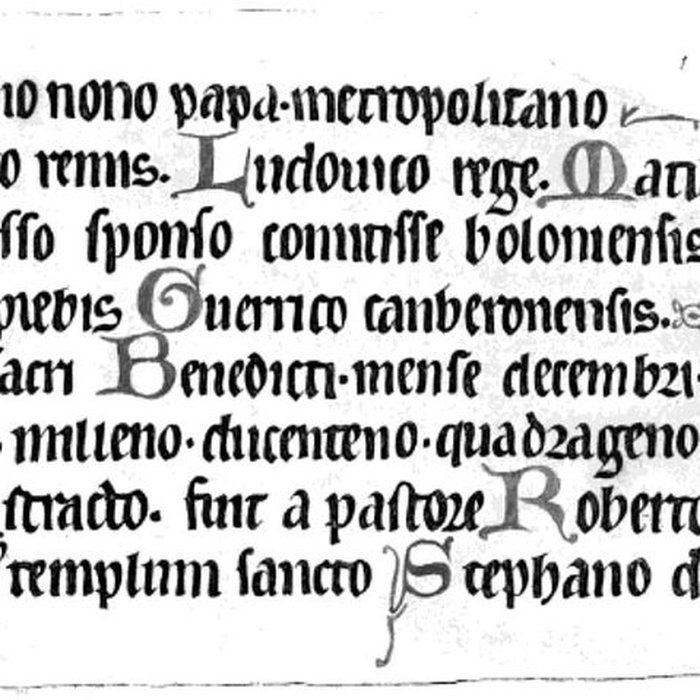 no nono papa·metropolitano
o remis. Ludouico rege. Mati
sso sponso comitisse boloniensis
prebis Guerrico canberonensis.
sacri Benedicti·mense decembri·
milleno·ducenteno·quadrageno
stracto. fuit a pastore Roberto
templum sancto Stephano d